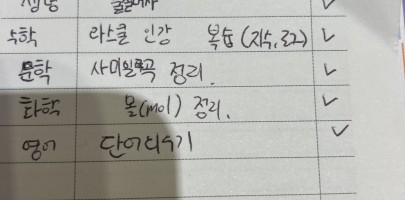 수학 라스쿨 인강 복습 (지수, 로그)
문학 사미인곡 정리.
화학 몰(mol) 정리.
영어 단어외우기